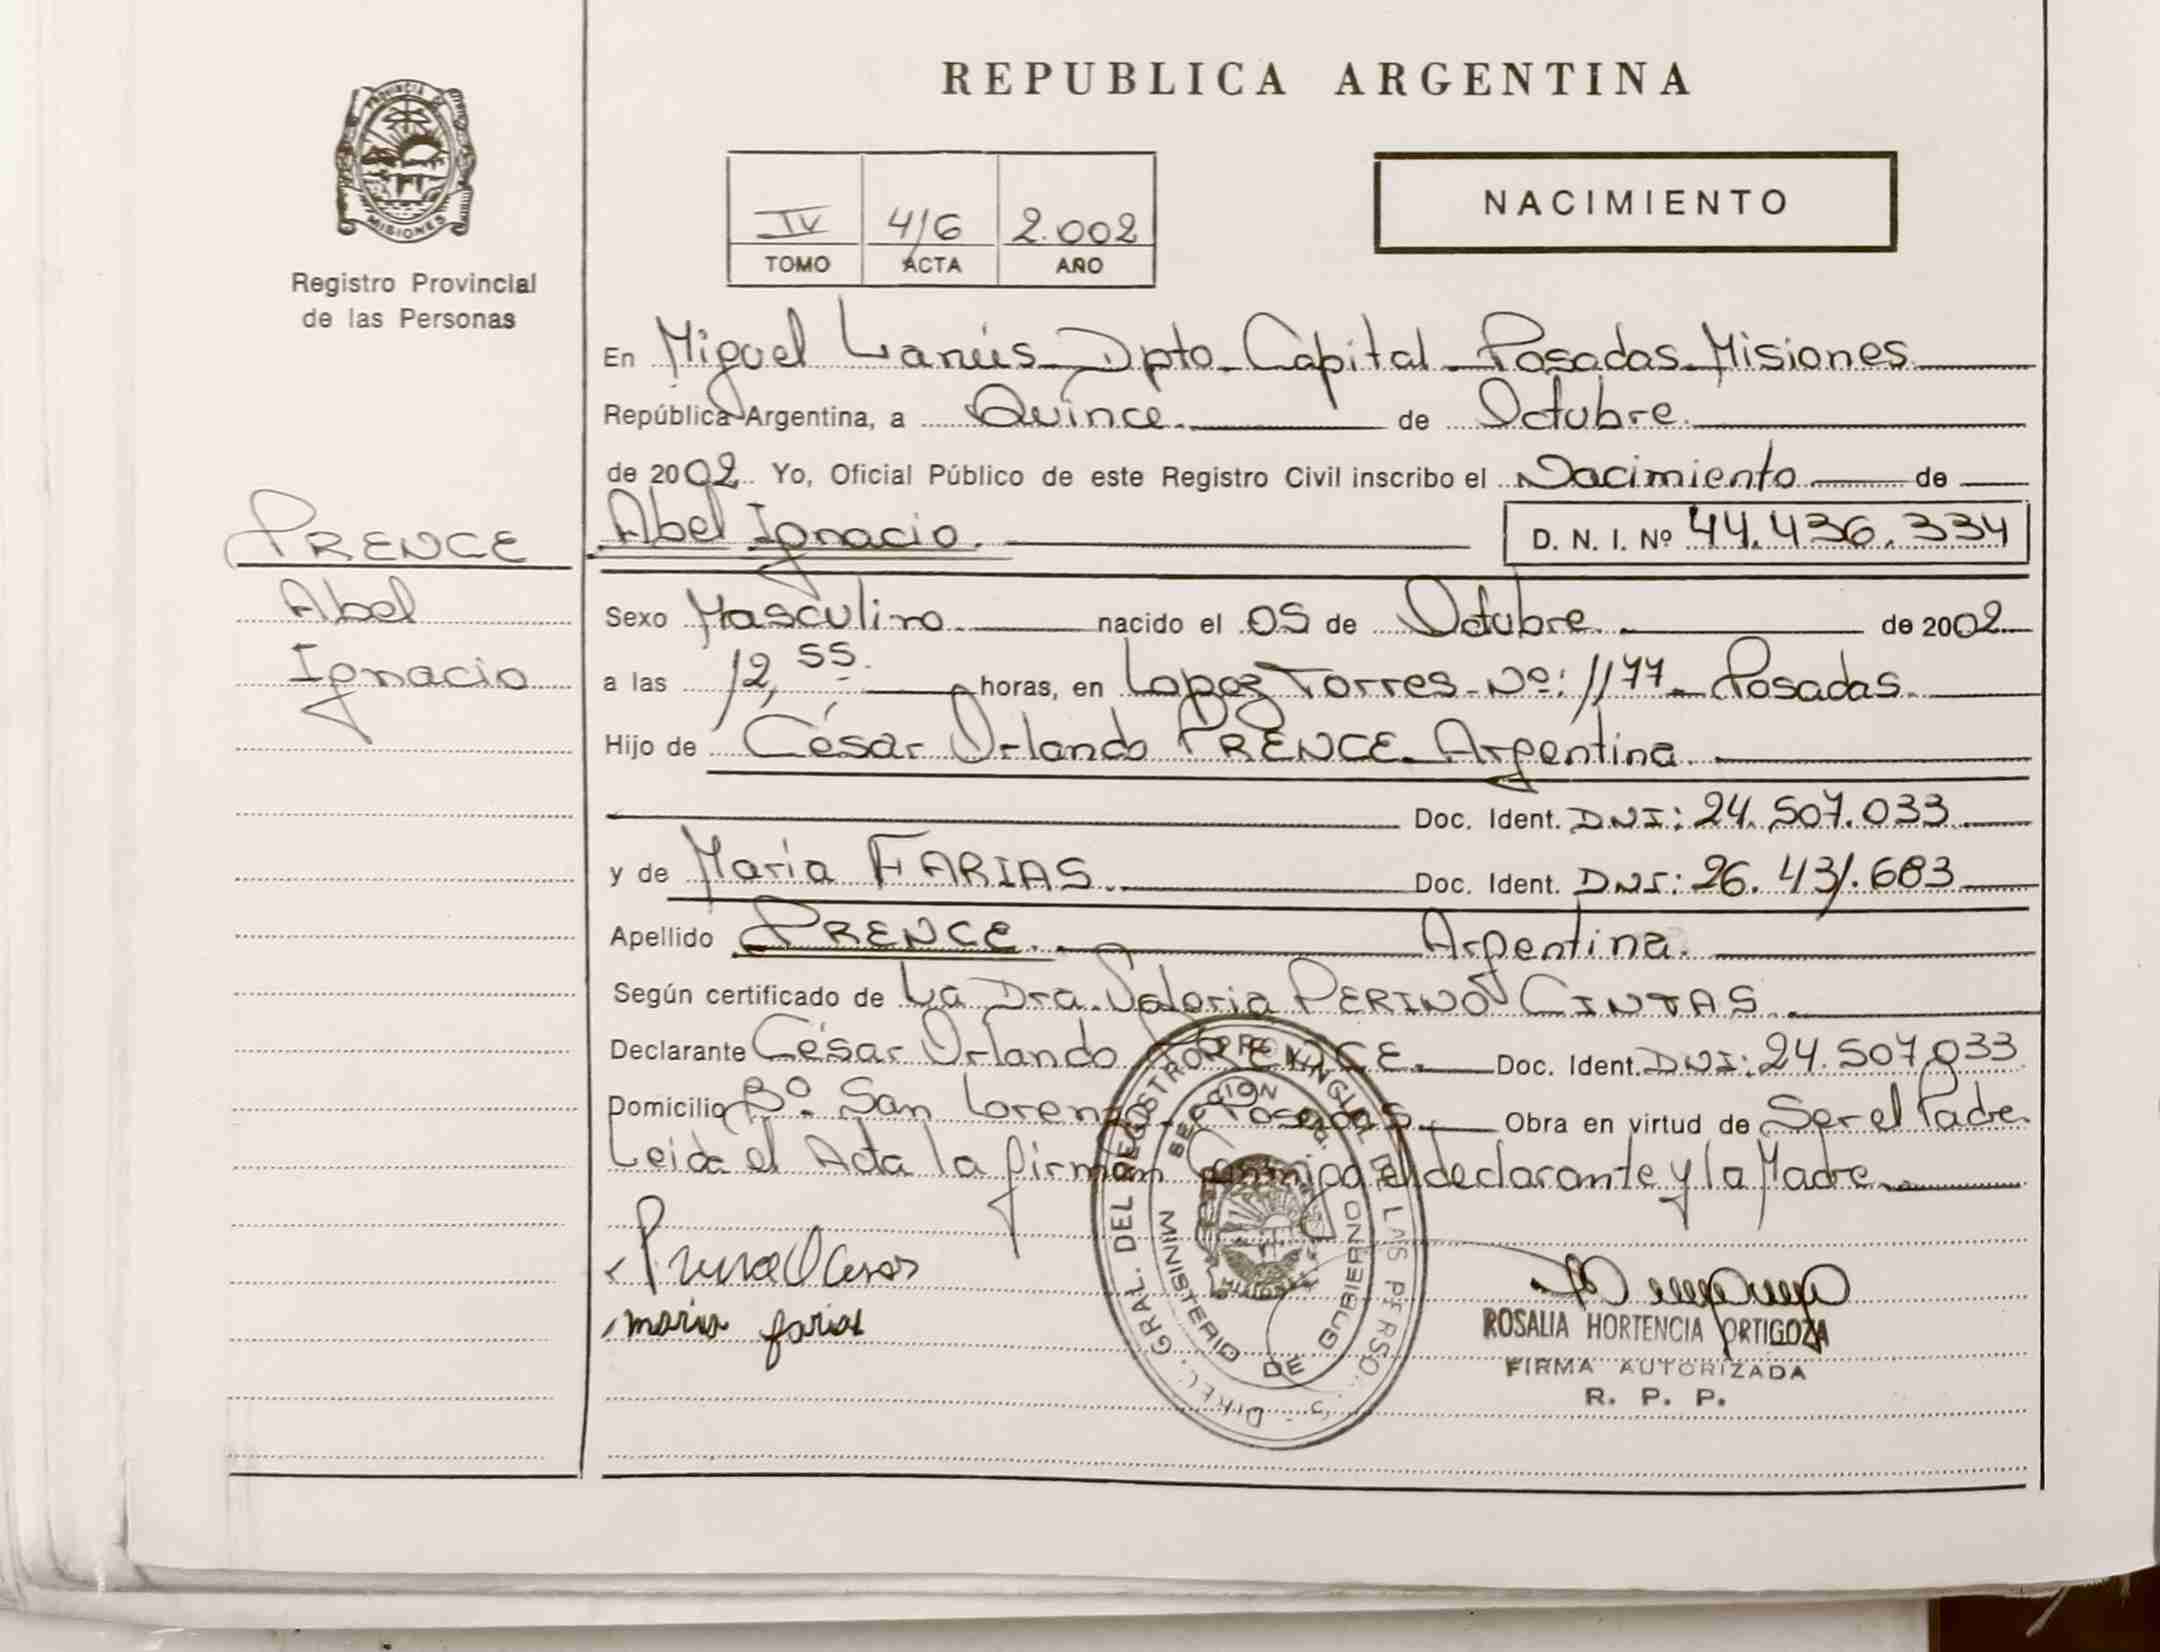 REPUBLICA ARGENTINA
PROVINCIA DE
MISIONES
Registro Provincial
de las Personas
IV 416 2.002
TOMO ACTA AÑO
NACIMIENTO
En Miguel Lanús Dpto. Capital Posadas Misiones
República Argentina, a Quince de Octubre
de 2002. Yo, Oficial Público de este Registro Civil inscribo el Nacimiento de
Abel Ignacio. D. N. I. Nº 44.436.334
PRENCE
Abel
Ignacio
Sexo Masculino nacido el 05 de Octubre de 2002
a las 12,55. horas, en Lopez Torres Nº: 1177 Posadas.
Hijo de César Orlando PRENCE. Argentina.
Doc. Ident. DNI: 24.507.033
y de María FARIAS. Doc. Ident. DNI: 26.431.683
Apellido PRENCE. Argentina.
Según certificado de La Dra. Valeria PERINO CINTAS
Declarante César Orlando PRENCE. Doc. Ident. DNI: 24.507.033
Domicilio Bº. San Lorenzo Posadas. Obra en virtud de Ser el Padre.
Leida el Acta la firman conmigo el declarante y la Madre.
maria farias
DIREC. GRAL. DEL REGISTRO PROVINCIAL DE LAS PERSO
SECCION
MINISTERIO DE GOBIERNO
ROSALIA HORTENCIA ORTIGOZA
FIRMA AUTORIZADA
R. P. P.